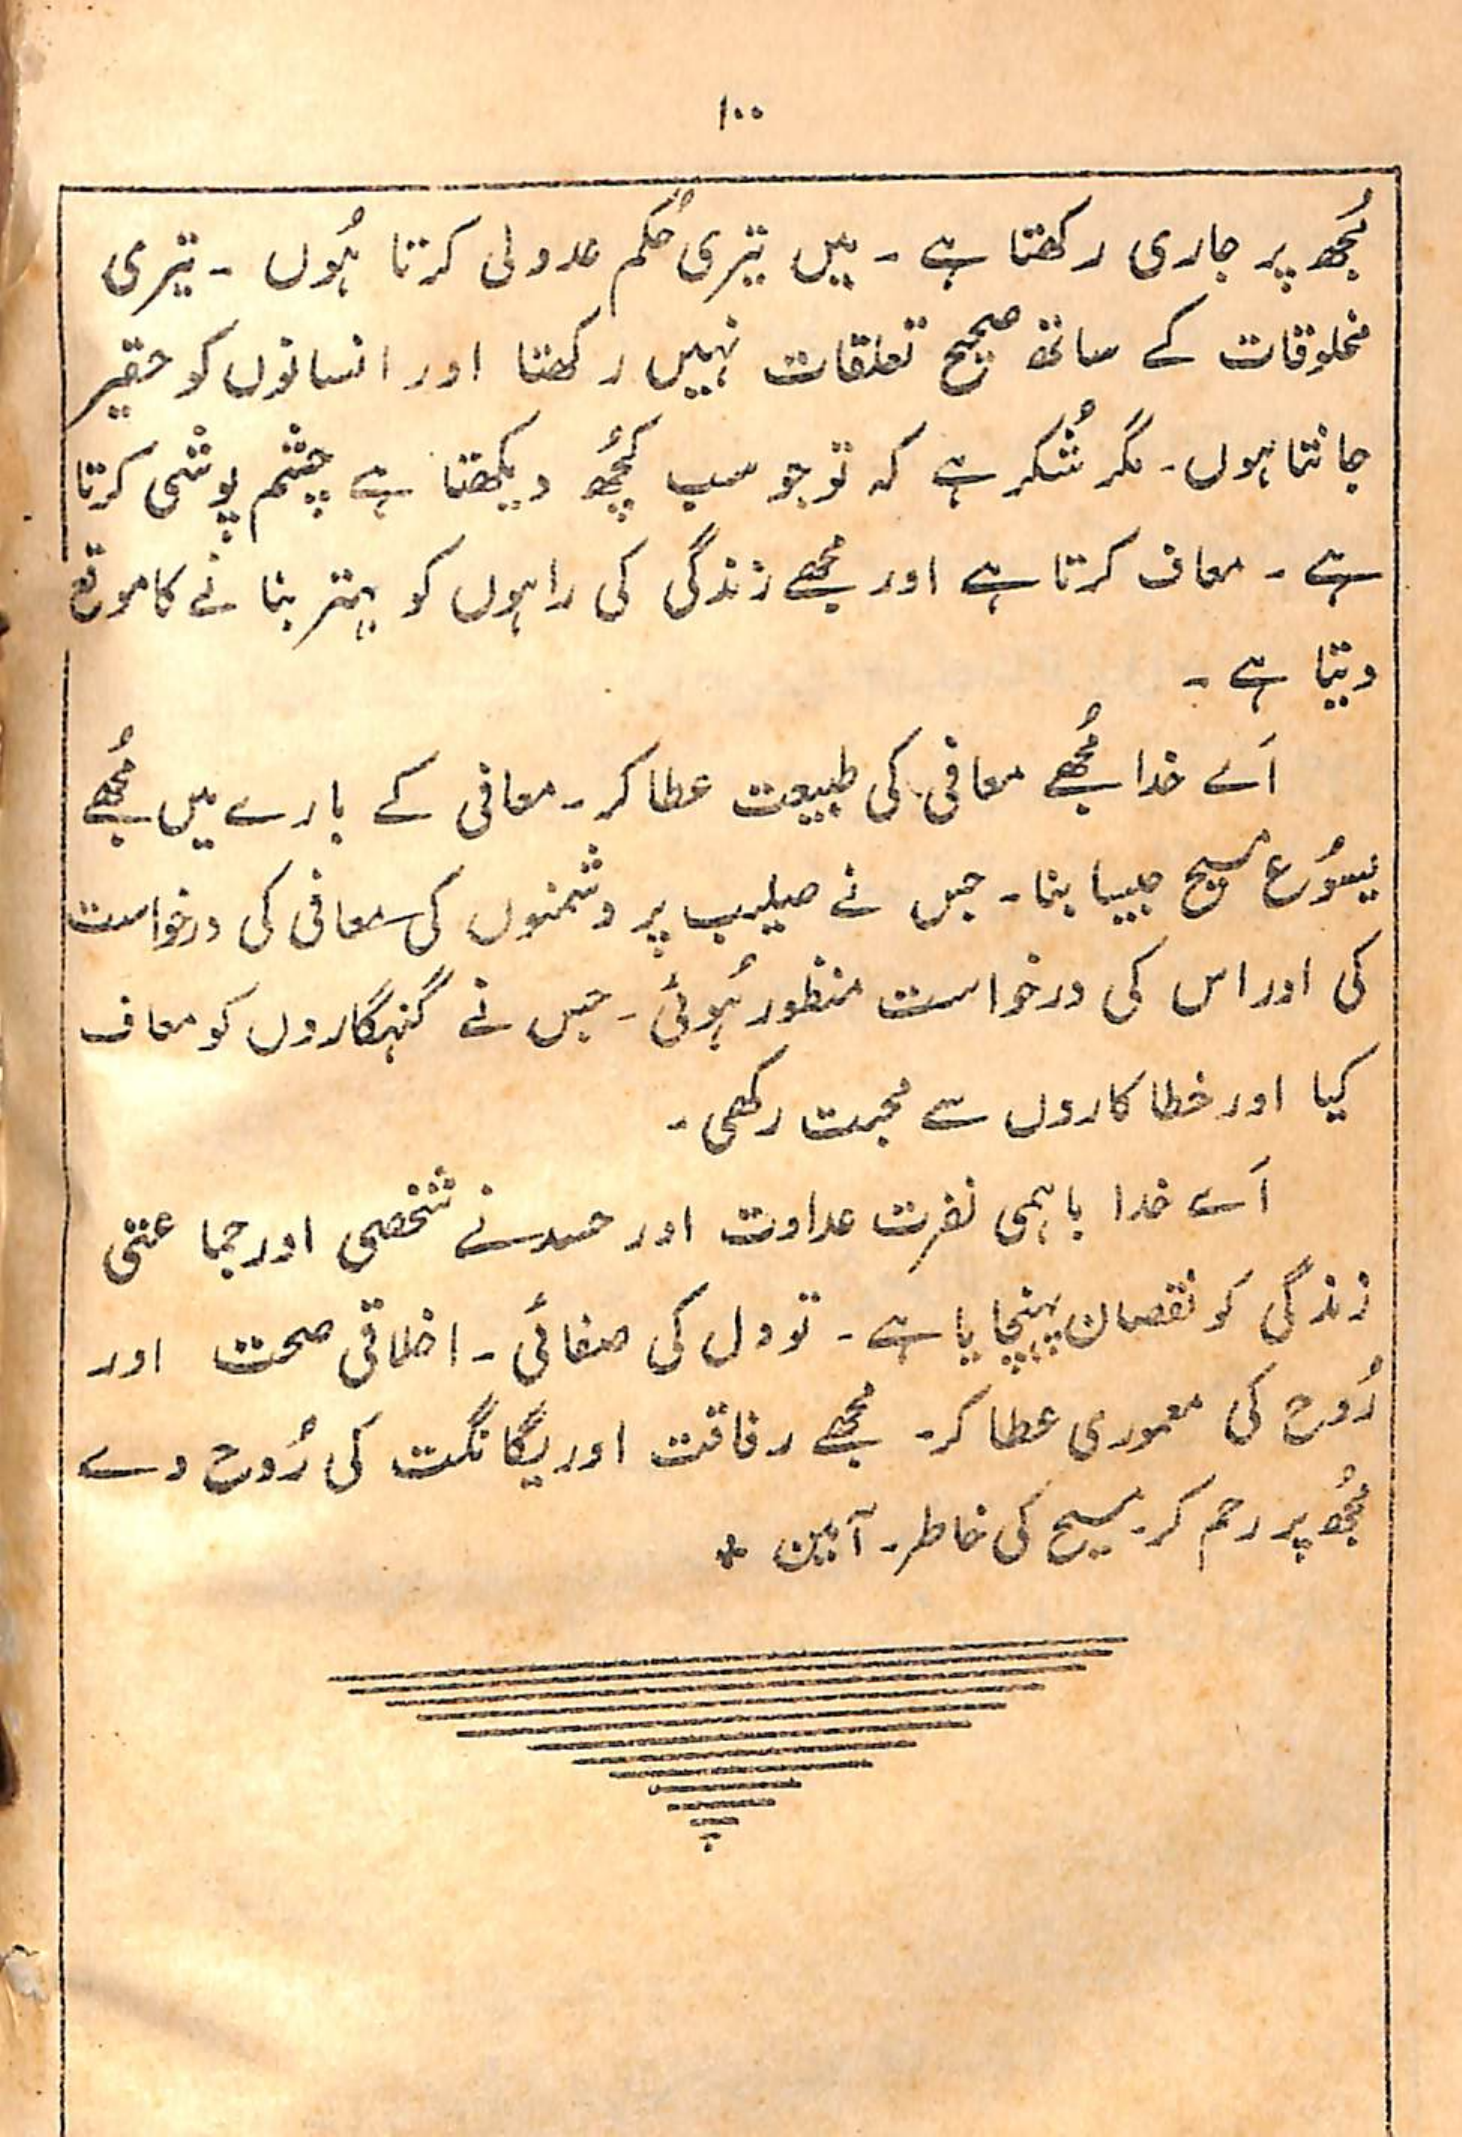 ۱۰۰
مُجھ پر جاری رکھتا ہے ۔ میں تیری حُکم عدولی کرتا ہُوں ۔ تیری
مخلوقات کے ساتھ صحیح تعلقات نہیں رکھتا اور انسانوں کو حقیر
جانتا ہوں۔ مگر شُکر ہے کہ تو جو سب کچُھ دیکھتا ہے چشم پوشی کرتا
ہے ۔ معاف کرتا ہے اور مجھے زندگی کی راہوں کو بہتر بنانے کا موقع
دیتا ہے ۔
اَے خدا مُجھے معافی کی طبیعت عطا کر۔ معافی کے بارے میں مُجھے
یسُوع مسیح جیسا بنا۔ جس نے صلیب پر دشمنوں کی معافی کی درخواست
کی اور اس کی درخواست منظور ہُوئی ۔ جس نے گنہگاروں کو معاف
کیا اور خطا کاروں سے محبت رکھی۔
اَے خدا باہمی نفرت عداوت اور حسد نے شخصی اور جماعتی
زندگی کو نقصان پہنچایا ہے ۔ تو دل کی صفائی ۔ اخلاقی صحت اور
رُوح کی معموری عطا کر۔ مجھے رفاقت اور یگانگت کی رُوح دے
مُجھ پر رحم کر۔ مسیح کی خاطر۔ آمین +